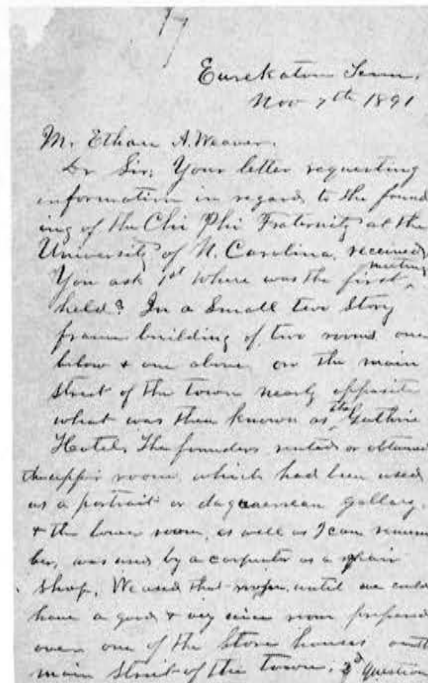 Eurekaton Tenn.
Nov 7th 1891
Mr. Ethan A. Weaver.
Dr Sir; Your letter requesting
information in regard to the found
ing of the Chi Phi Fraternity at the
University of N. Carolina, received
You ask 1st Where was the first meeting
held? In a Small two Story
frame building of two rooms one
below & one above on the main
street of the town nearly opposite
what was then known as the Guthrie
Hotel. The founders rented or obtained
the upper room which had been used
as a portrait or daguerrean gallery.
& the lower room, as well as I can remem
ber, was used by a carpenter as a
shop. We used that until we could
have a good & very nice room prepared
over one of the Store houses on the
main Street of the town. 3d question